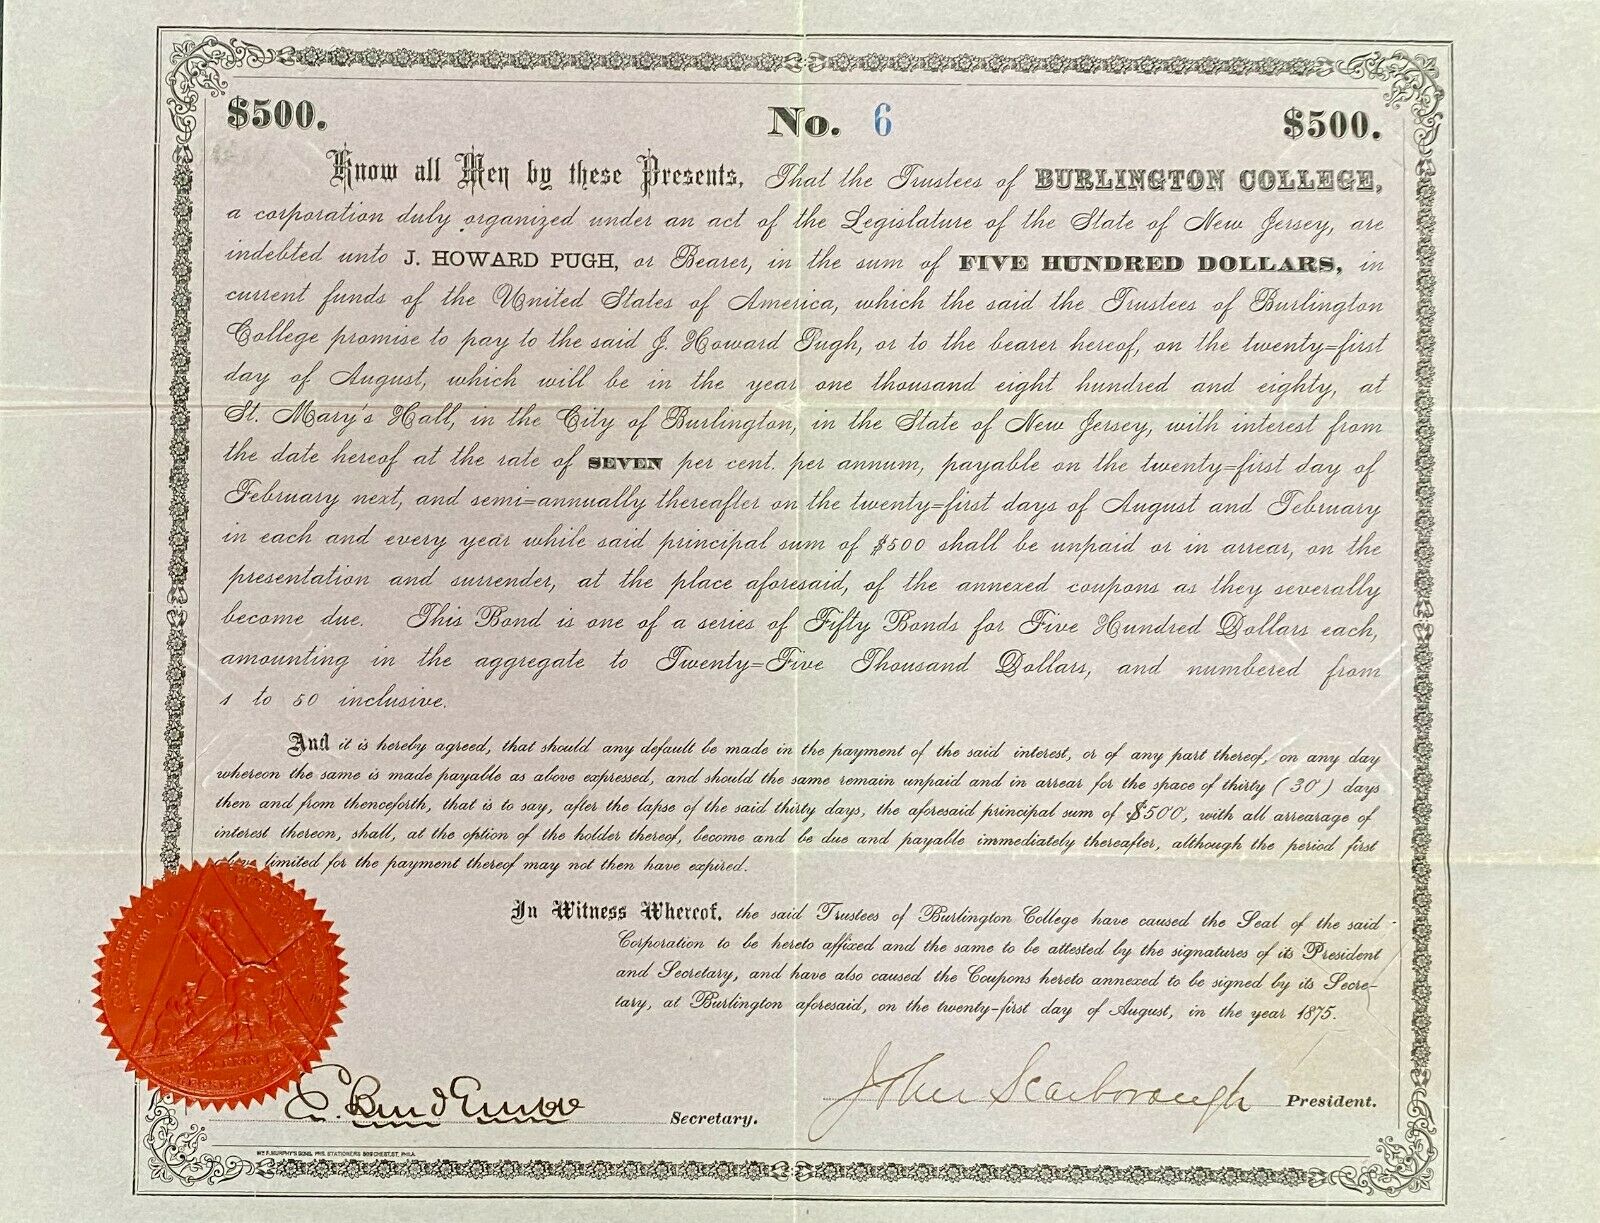 $500. No. 6 $500.
Know all Men by these Presents, That the Trustees of BURLINGTON COLLEGE,
a corporation duly organized under an act of the Legislature of the State of New Jersey, are
indebted unto J. HOWARD PUGH, or Bearer, in the sum of FIVE HUNDRED DOLLARS, in
current funds of the United States of America, which the said the Trustees of Burlington
College promise to pay to the said J. Howard Pugh, or to the bearer hereof, on the twenty=first
day of August, which will be in the year one thousand eight hundred and eighty, at
St. Mary's Hall, in the City of Burlington, in the State of New Jersey, with interest from
the date hereof at the rate of SEVEN per cent. per annum, payable on the twenty=first day of
February next, and semi=annually thereafter on the twenty=first days of August and February
in each and every year while said principal sum of $500 shall be unpaid or in arrear, on the
presentation and surrender, at the place aforesaid, of the annexed coupons as they severally
become due. This Bond is one of a series of Fifty Bonds for Five Hundred Dollars each,
amounting in the aggregate to Twenty=Five Thousand Dollars, and numbered from
1 to 50 inclusive.
And it is hereby agreed, that should any default be made in the payment of the said interest, or of any part thereof, on any day
whereon the same is made payable as above expressed, and should the same remain unpaid and in arrear for the space of thirty (30) days
then and from thenceforth, that is to say, after the lapse of the said thirty days, the aforesaid principal sum of $500, with all arrearage of
interest thereon, shall, at the option of the holder thereof, become and be due and payable immediately thereafter, although the period first
above limited for the payment thereof may not then have expired.
In Witness Whereof, the said Trustees of Burlington College have caused the Seal of the said
Corporation to be hereto affixed and the same to be attested by the signatures of its President
and Secretary, and have also caused the Coupons hereto annexed to be signed by its Secre-
tary, at Burlington aforesaid, on the twenty-first day of August, in the year 1875.
John Scarborough President.
Secretary.
WM F. MURPHY'S SONS, PRS. STATIONERS 509 CHEST. ST. PHILA.